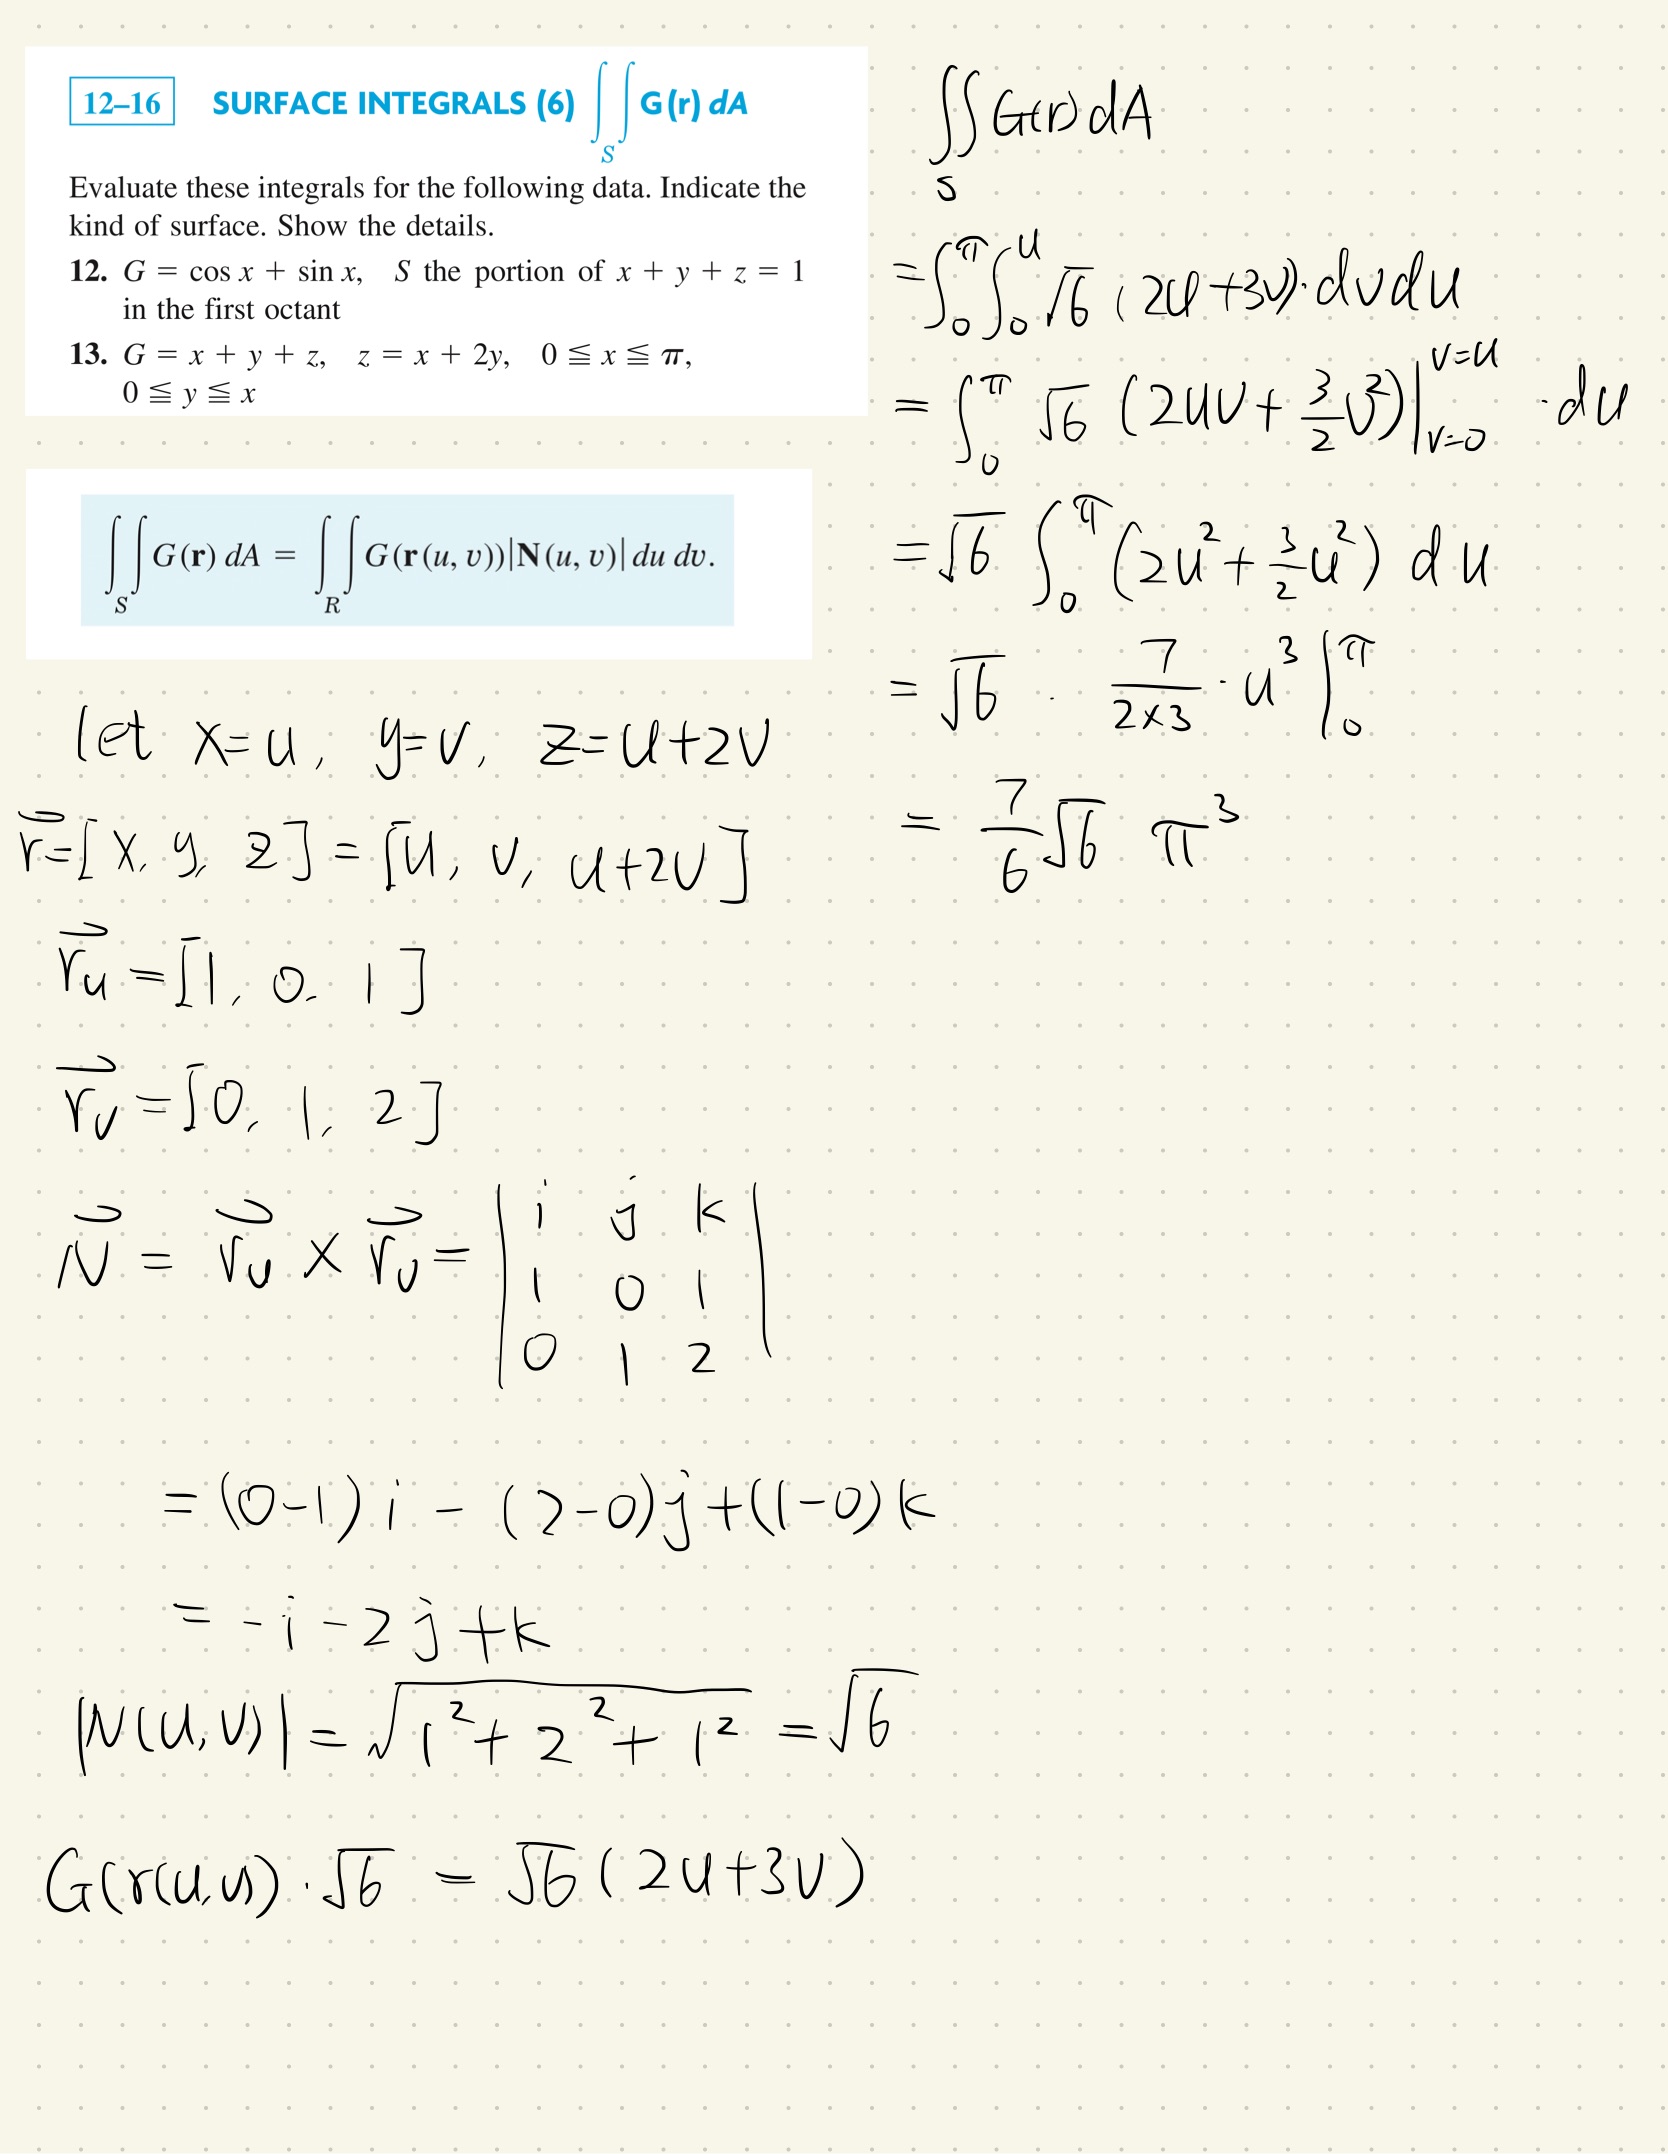 12–16 SURFACE INTEGRALS (6) ∫∫_S G(r) dA
Evaluate these integrals for the following data. Indicate the
kind of surface. Show the details.
12. G = cos x + sin x, S the portion of x + y + z = 1
in the first octant
13. G = x + y + z, z = x + 2y, 0 ≦ x ≦ π,
0 ≦ y ≦ x
∫∫_S G(r) dA = ∫∫_R G(r(u, v))|N(u, v)| du dv.
let x=u, y=v, z=u+2v
r⃗=[x, y, z] = [u, v, u+2v]
r⃗_u = [1, 0, 1]
r⃗_v = [0, 1, 2]
N⃗ = r⃗_u × r⃗_v = | i j k
1 0 1
0 1 2 |
= (0-1)i - (2-0)j+(1-0)k
= -i-2j+k
|N(u,v)| = √(1²+2²+1²) = √6
G(r(u,v)·√6 = √6(2u+3v)
∫∫_S G(r)dA
= ∫_0^π ∫_0^u √6 (2u+3v)·dvdu
= ∫_0^π √6 (2uv + 3/2 v²)|_{v=0}^{v=u} ·du
= √6 ∫_0^π (2u² + 3/2 u²) du
= √6 · 7/(2×3) · u³ |_0^π
= 7/6 √6 π³